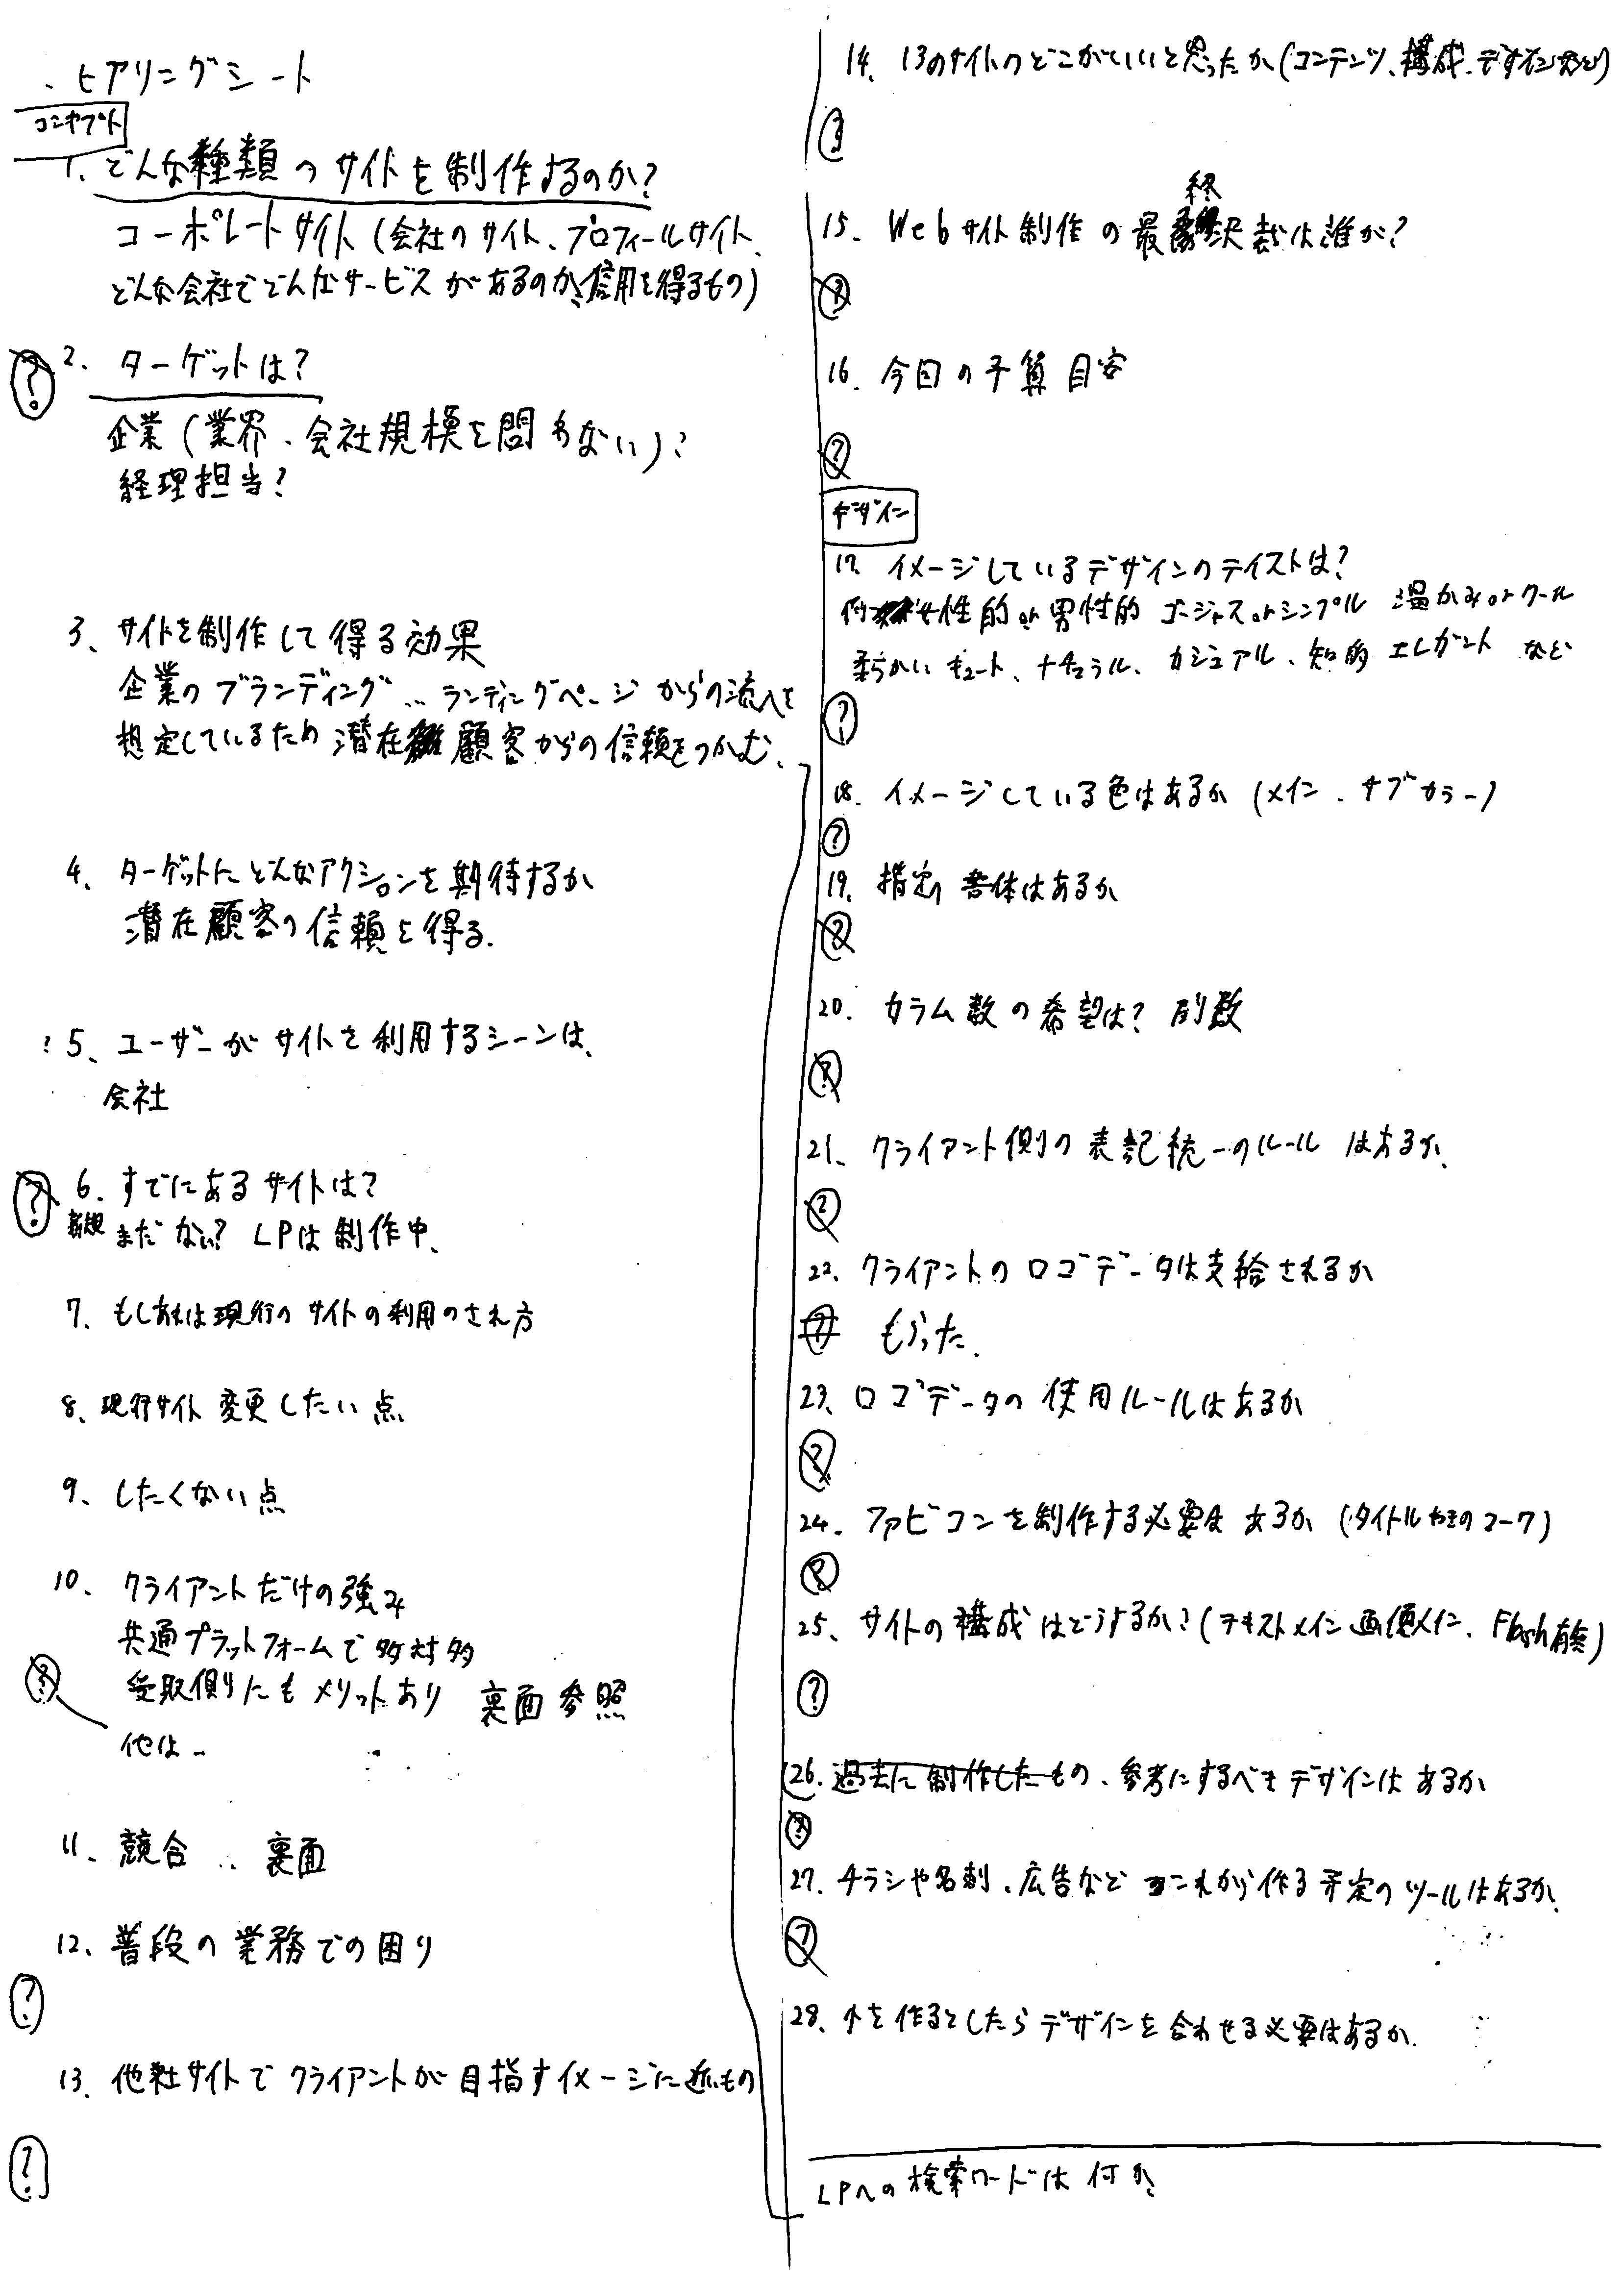 ・ヒアリングシート
コンセプト
1. どんな種類のサイトを制作するのか?
コーポレートサイト(会社のサイト、プロフィールサイト、
どんな会社でどんなサービスがあるのか、信用を得るもの)
? 2. ターゲットは?
企業(業界、会社規模を問わない)?
経理担当?
3、サイトを制作して得る効果
企業のブランディング… ランディングページからの流入を
想定しているため潜在顧客からの信頼をつかむ、
4、ターゲットにどんなアクションを期待するか
潜在顧客の信頼を得る.
? 5、ユーザーがサイトを利用するシーンは、
会社
? 6. すでにあるサイトは?
新規 まだない? LPは制作中、
7、もしあれば現行のサイトの利用のされ方
8、現行サイト変更したい点
9、したくない点
10、クライアントだけの強み
共通プラットフォームで多対多
受取側にもメリットあり 裏面参照
?
他は…
11、競合 … 裏面
12、普段の業務での困り
?
13、他社サイトでクライアントが目指すイメージに近いもの
?
14、13のサイトのどこがいいと思ったか(コンテンツ、構成、デザインなど)
?
15. Webサイト制作の最終決裁は誰か?
?
16. 今回の予算目安
?
デザイン
17. イメージしているデザインのテイストは?
女性的or男性的 ゴージャスorシンプル 温かみorクール
柔らかい キュート、ナチュラル、カジュアル、知的 エレガント など
?
18. イメージしている色はあるか(メイン、サブカラー)
?
19. 指定の書体はあるか
?
20. カラム数の希望は? 列数
?
21、クライアント側の表記統一のルールはあるか、
?
22、クライアントのロゴデータは支給されるか
? もらった.
23、ロゴデータの使用ルールはあるか
?
24. ファビコンを制作する必要はあるか(タイトルやきのマーク)
?
25、サイトの構成はどうするか?(テキストメイン 画像メイン、Flash有無)
?
26. 過去に制作したもの、参考にするべきデザインはあるか
?
27. チラシや名刺、広告など これから作る予定のツールはあるか、
?
28、↑を作るとしたらデザインを合わせる必要はあるか.
LPへの検索ワードは何か